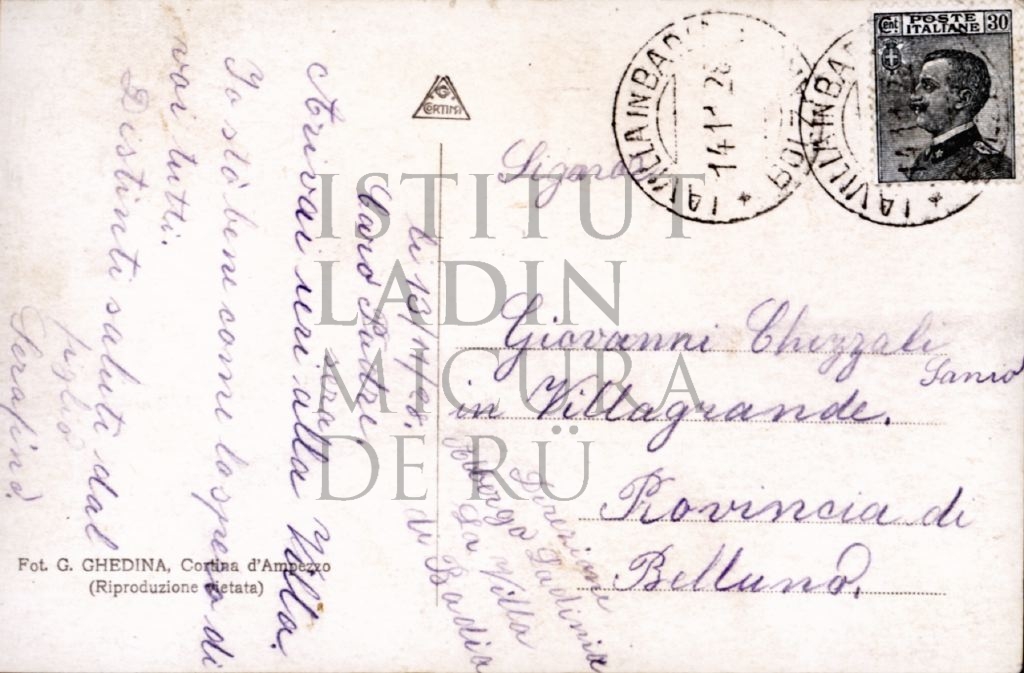 POSTE
ITALIANE
Cent. 30
LA VILLA IN BADIA
BOLZANO
LA VILLA IN BADIA
G
CORTINA
li 13/11/28.
Caro Padre
Arrivai ieri sera alla Villa.
Io stò bene come lo spero di
voi tutti.
Distinti saluti dal
figlio
Serafino.
Signor
Giovanni Ghezzali
in Villagrande.
Provincia di
Belluno.
Direzione
Albergo Ladinia
La Villa
di Badia
Fot. G. GHEDINA, Cortina d'Ampezzo
(Riproduzione vietata)
ISTITUT
LADIN
MICURÀ
DE RÜ